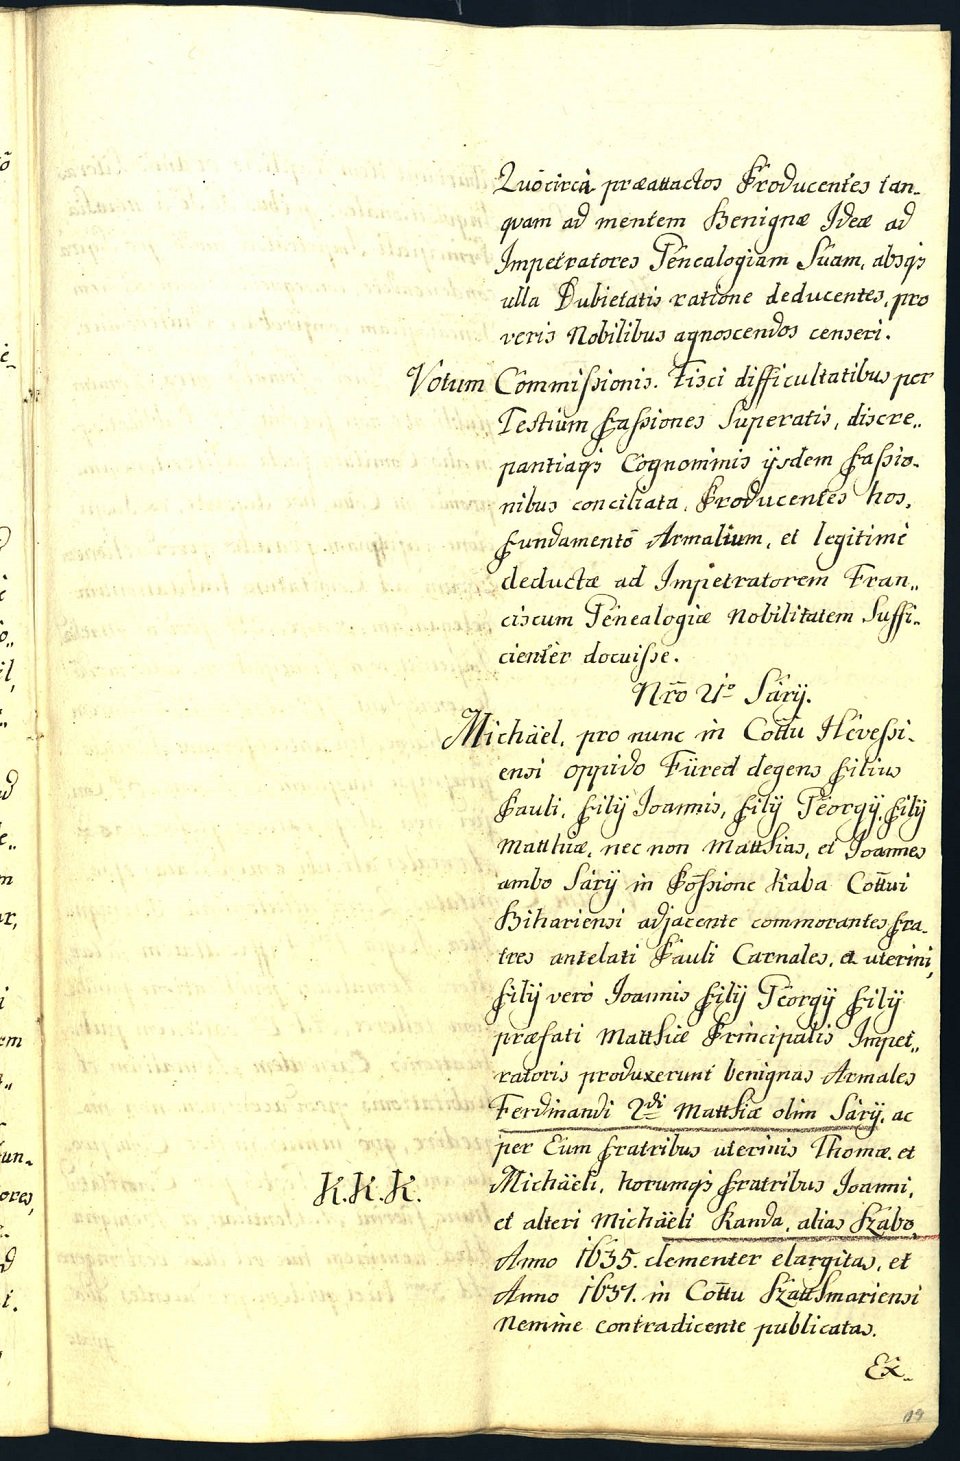 Quócircà præattactos Producentes tan-
quam ad mentem Benignæ Ideæ ad
Impetratores Genealogiam Suam, absqs
ulla Dubietatis ratione deducentes, pro
veris Nobilibus agnoscendos censeri.
Votum Commißionis. Fisci difficultatibus per
Testium faßiones Superatis, discre„
pantiaqs Cognominis ijsdem faßio-
nibus conciliata, Producentes hos,
fundamentō Armalium, et legitimè
deductæ ad Impetratorem Fran„
ciscum Genealogiæ Nobilitatem Suffi„
cientèr docuiße.
Nro̅ 21o Sáry.
Michäel, pro nunc in Cottu Hevessi-
ensi oppido Füred degens filius
Pauli, filij Joannis, filij Georgij, filij
Matthiæ, nec non Matthias, et Joannes
ambo Sáry in Poßione Kaba Cottui
Bihariensi adjacente commorantes fra-
tres antelati Pauli Carnales, et uterini,
filij verò Joannis filij Georgij filij
præfati Matthiæ Principalis Impet„
ratoris produxerunt benignas Armales
Ferdinandi 2di Matthiæ olim Sáry, ac
per Eum fratribus uterinis Thomæ, et
Michäeli, horumqs fratribus Joanni,
K. K. K.
et alteri Michäeli Kanda, alias Szabo,
Anno 1635. clementer elargitas, et
Anno 1637. in Cottu Szatthmariensi
Nemine contradicente publicatas.
Ex-